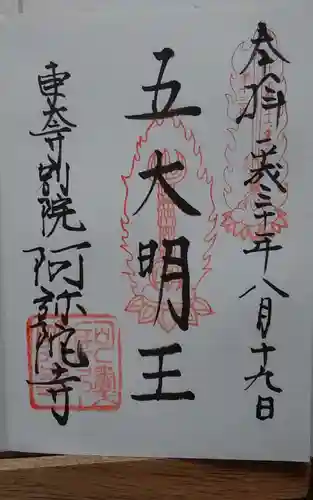 奉拝 平成三十一年八月十九日
五大明王
東大寺別院阿弥陀寺